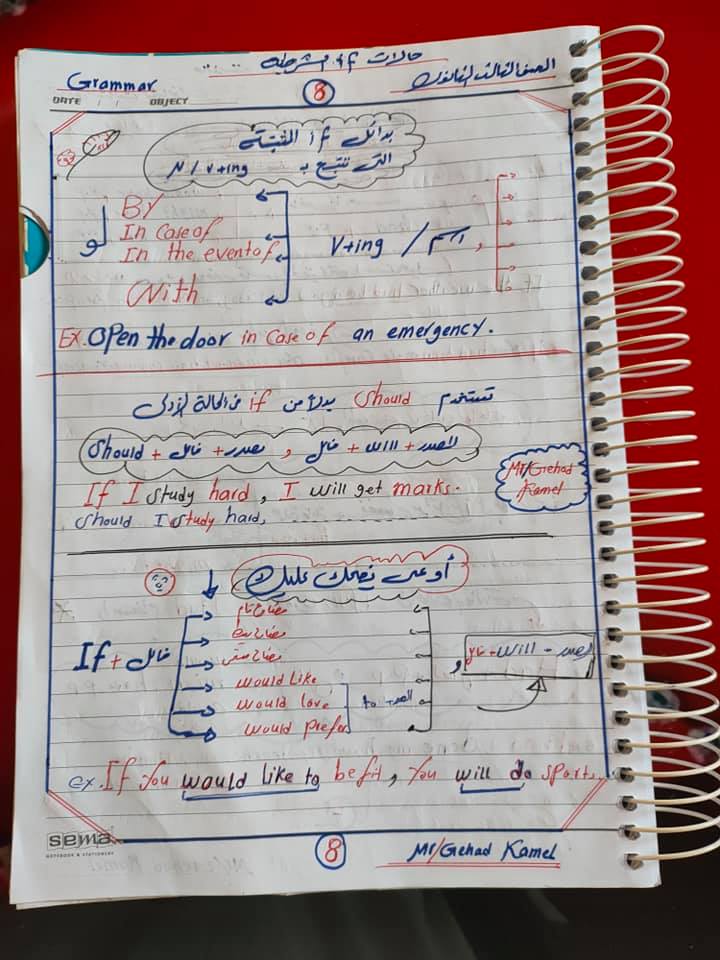 حالات if الشرطية
الصف الثالث الثانوى
Grammar
8
DATE / / OBJECT
بدائل if المثبتة
التى تتبع بـ N / V+ing
By
In Case of
In the event of
With
لو
V+ing / اسم ,
Ex. Open the door in Case of an emergency.
تستخدم Should بدلاً من if فى الحالة الأولى
Should + فاعل + مصدر , فاعل + will + المصدر
If I study hard, I will get marks.
Should I study hard, ............
Mr/Gehad Kamel
أوعى يضحك عليك
If + فاعل
مضارع تام
مضارع بسيط
مضارع مستمر
would Like
would love
would prefer
to المصدر
, فاعل - will - المصدر
ex. If you would like to be fit, you will do sports.
sema
NOTEBOOK & STATIONERY
8
Mr/Gehad Kamel